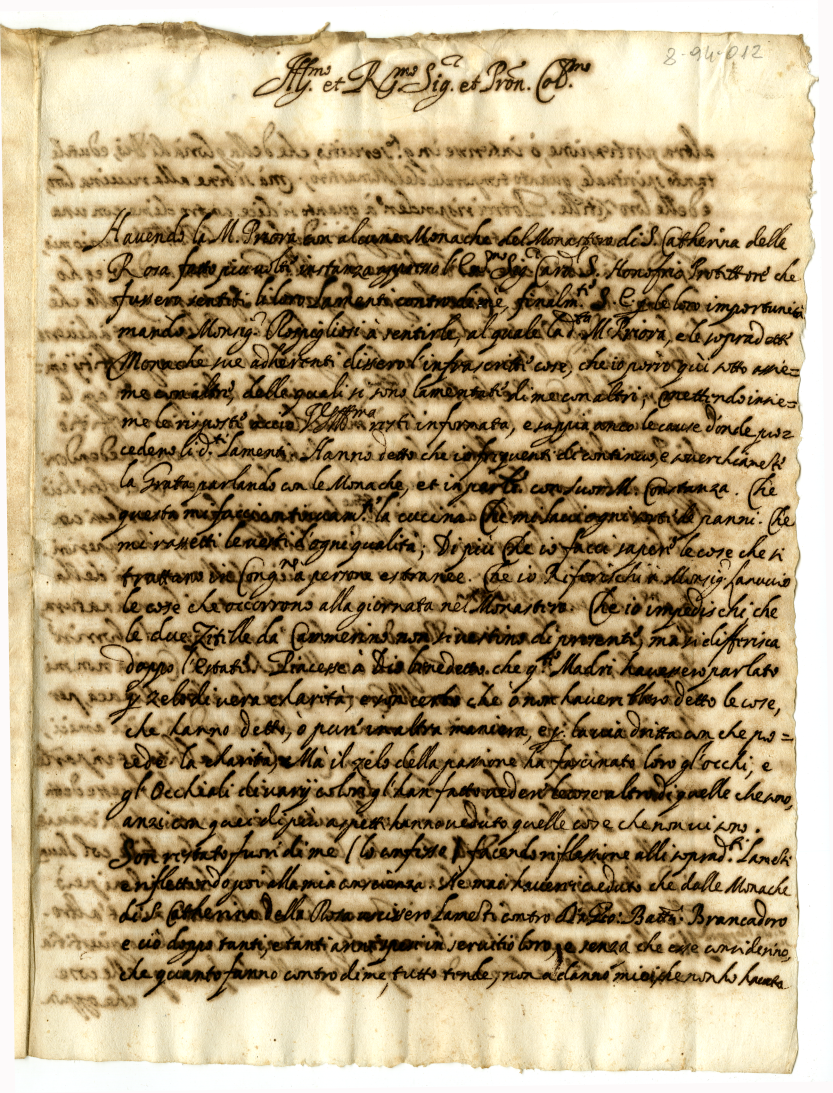 8-94-012
Ill.mo et R.mo Sig.r et Pron. Col.mo
Havendo la M. Priora con alcune Monache del Monastero di S. Catherina delle
Rosa fatto più volte instanza appresso l'Em.mo Sig.r Card. S. Honofrio Protettore che
fussero sentiti li loro lamenti contro di me, finalm.te S. E. p le loro importunità
mandò Monsig.r Rospigliosi à sentirle, al quale la d.ta M. Priora, e le sopradette
Monache sue adherenti dissero l'infrascritte cose, che io porrò quì sotto assie=
me con altre, delle quali si sono lamentate di me con altri, mettendo insie=
me le risposte acciò V.S. Ill.ma resti informata, e sappia anco le cause d'onde pro
cedono li d.ti lamenti. Hanno detto che io frequenti di continuo, e soverchiamente
la Grata parlando con le Monache, et in particolare con Suor M. Constanza. Che
questa mi facci continuam.te la cucina. Che mi lavi ogni sorte de panni. Che
mi rassetti le vesti d'ogni qualità; Di più Che io facci sapere le cose che si
trattano in Cong.ne à persone estranee. Che io riferischi à Monsig.r Fanuccio
le cose che occorrono alla giornata nel Monastero. Che io impedischi che
le due Zitelle da Cammerino non si vestino di presente, ma si differisca
doppo l'estate. Piacesse à Dio benedetto che q.ste Madri havessero parlato
p zelo di vera charità; son certo che ò non haverebbero detto le cose,
che hanno detto, ò pure in altra maniera, e p la via dritta con che pro=
cede la charità; Mà il zelo della passione ha fascinato loro gl'occhi, e
gl'Occhiali di varij colori gl'han fatto vedere le cose altro di quelle che sono,
anzi con quei di più aspetti hanno veduto quelle cose che non vi sono.
Son restato fuori di me (lo confesso) facendo riflessione alli soprad.ti lamenti
e riflettendo poi alla mia conscienza. Ne mai haverei creduto che dalle Monache
di S. Catherina della Rosa uscissero lamenti contro Batt.a Brancadoro
e ciò doppo tanti, e tanti anni spesi in servitio loro, e senza che esse considerino,
che quanto fanno contro di me, tutto tende, non a danno mio che non ho havuto